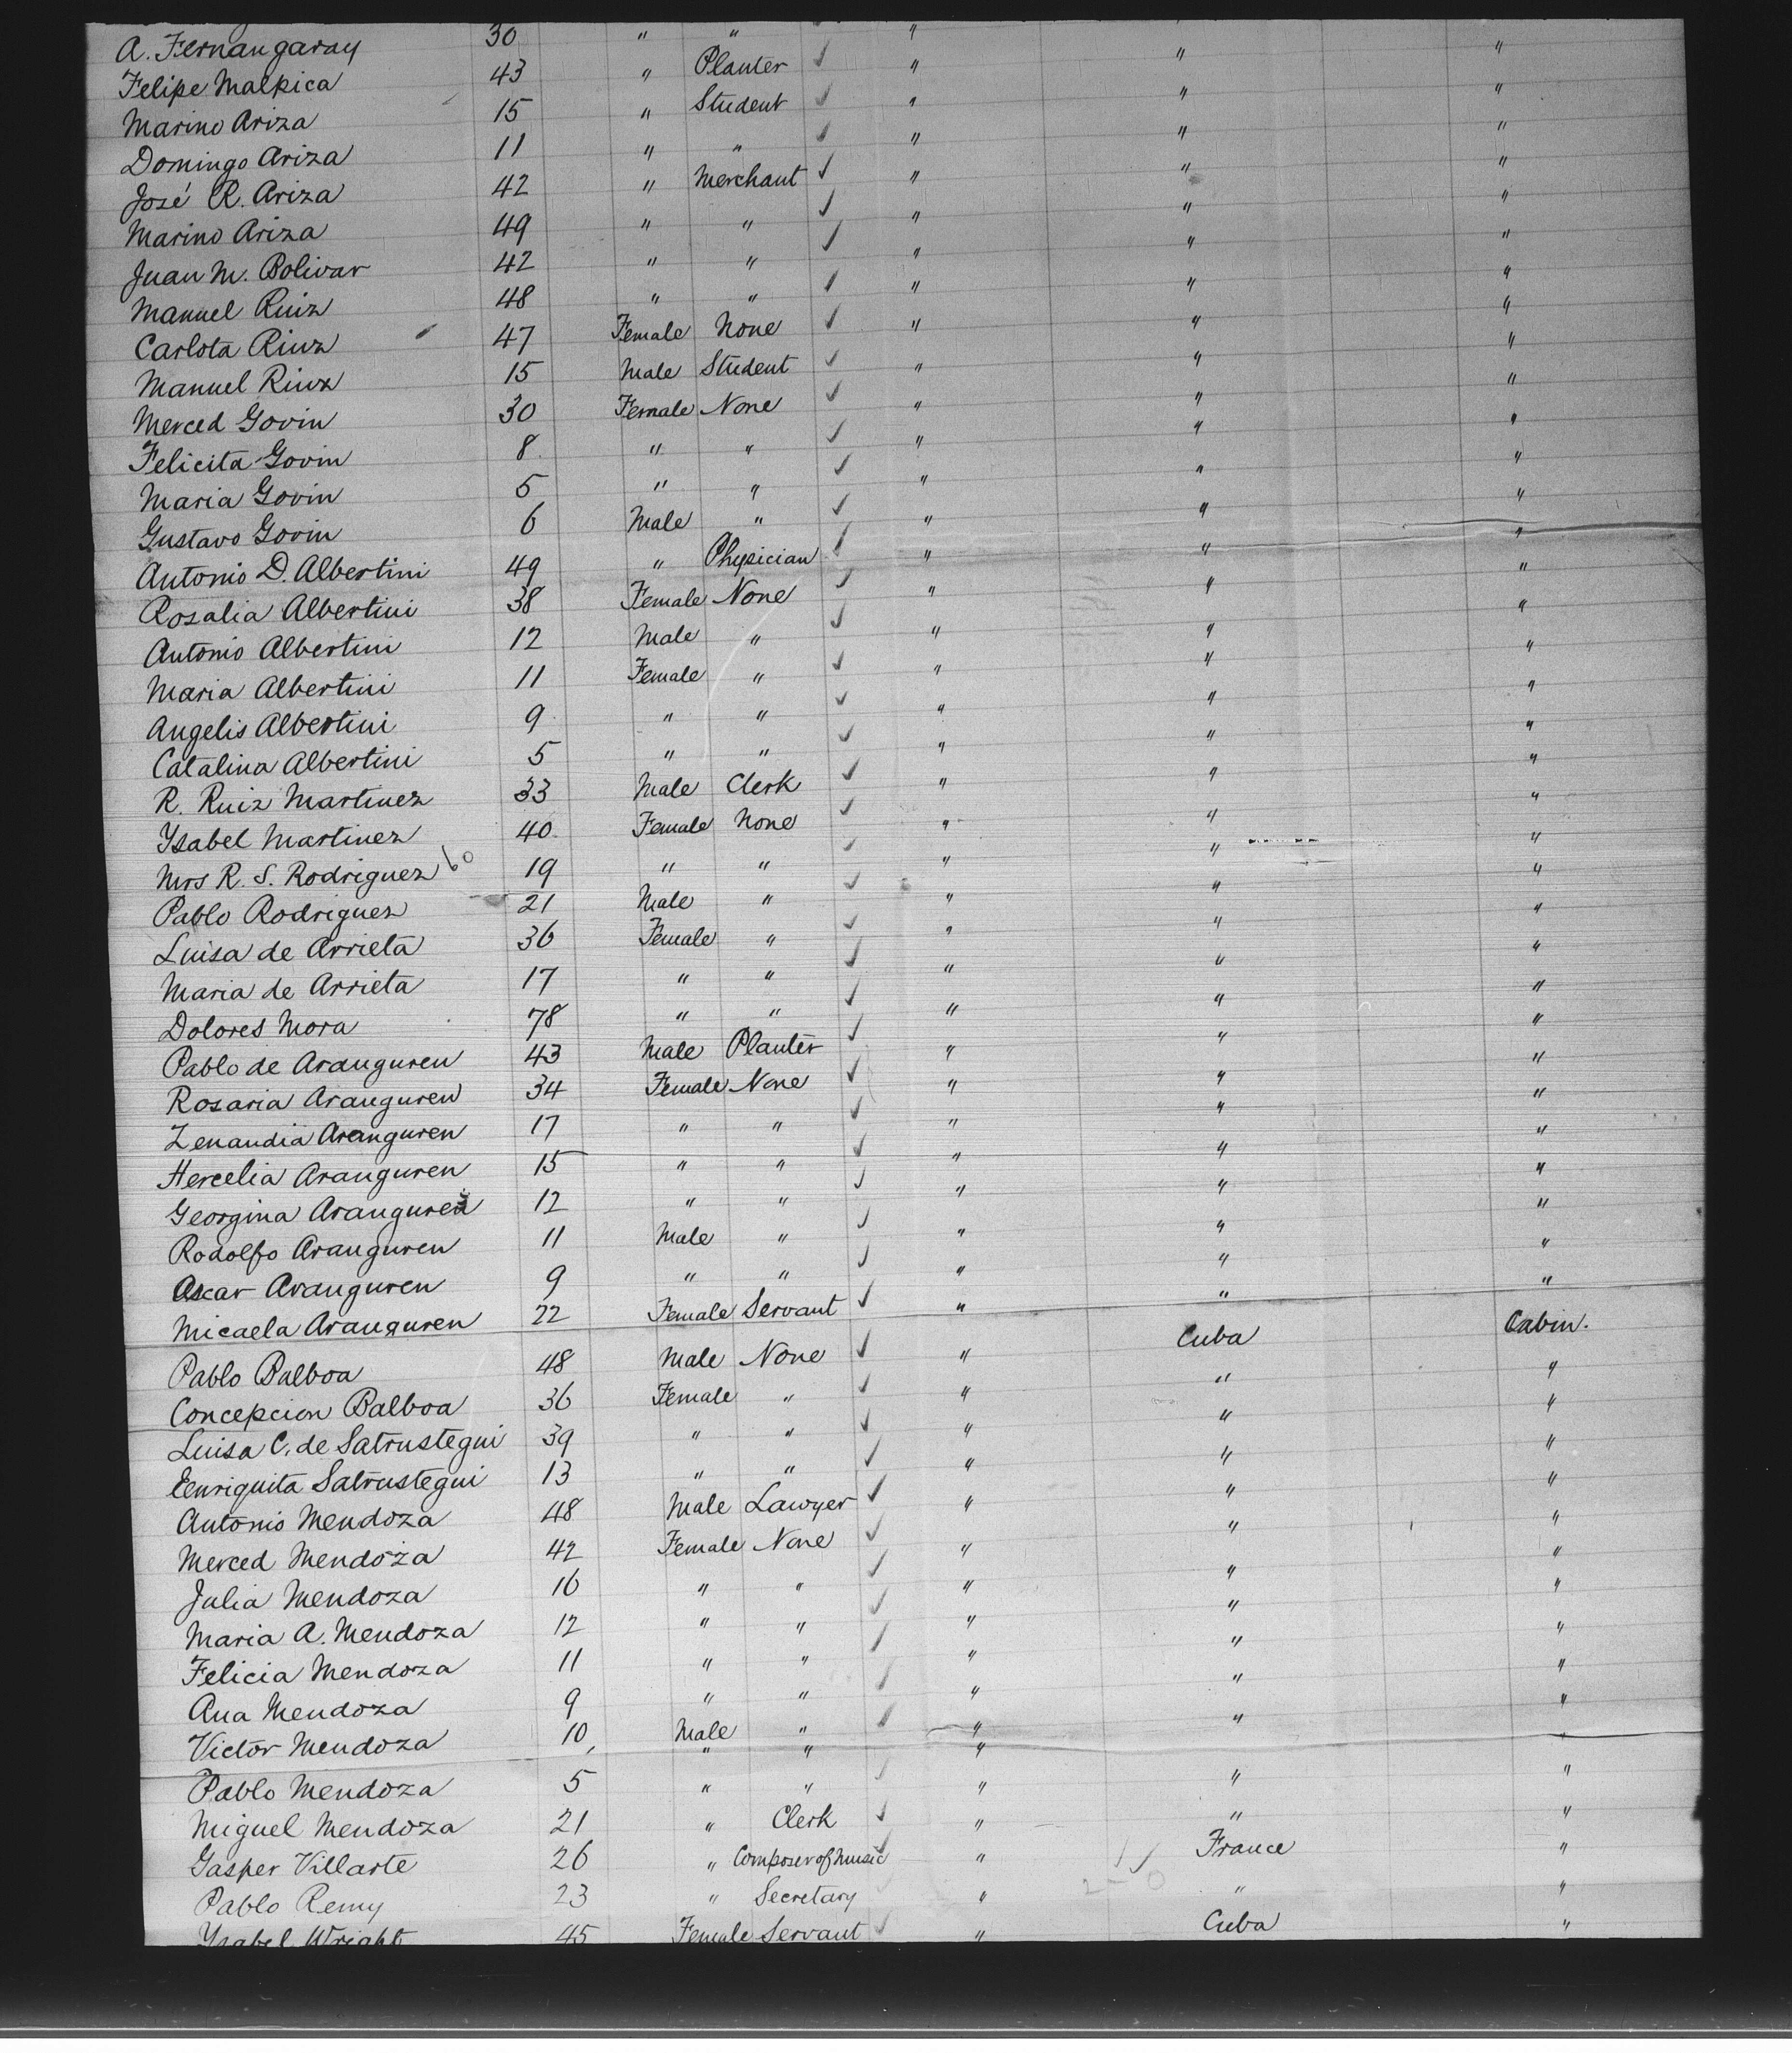 A. Fernangaray 30 " " " " "
Felipe Malpica 43 " Planter ✓ " " "
Marino Ariza 15 " Student ✓ " " "
Domingo Ariza 11 " " ✓ " " "
José R. Ariza 42 " Merchant ✓ " " "
Marino Ariza 49 " " ✓ " " "
Juan M. Bolivar 42 " " ✓ " " "
Manuel Ruiz 48 " " ✓ " " "
Carlota Riuz 47 Female None ✓ " " "
Manuel Riuz 15 Male Student ✓ " " "
Merced Govin 30 Female None ✓ " " "
Felicita Govin 8 " " ✓ " " "
Maria Govin 5 " " ✓ " " "
Gustavo Govin 6 Male " ✓ " " "
Antonio D. Albertini 49 " Physician ✓ " " "
Rosalia Albertini 38 Female None ✓ " " "
Antonio Albertini 12 Male " ✓ " " "
Maria Albertini 11 Female " ✓ " " "
Angelis Albertini 9 " " ✓ " " "
Catalina Albertini 5 " " ✓ " " "
R. Ruiz Martinez 33 Male Clerk ✓ " " "
Ysabel Martinez 40 Female None ✓ " " "
Mrs R. S. Rodriguez 19 " " ✓ " " "
Pablo Rodriguez 21 Male " ✓ " " "
Luisa de Arrieta 36 Female " ✓ " " "
Maria de Arrieta 17 " " ✓ " " "
Dolores Mora 78 " " ✓ " " "
Pablo de Aranguren 43 Male Planter ✓ " " "
Rosaria Aranguren 34 Female None ✓ " " "
Zenaudia Aranguren 17 " " ✓ " " "
Hercelia Aranguren 15 " " ✓ " " "
Georgina Aranguren 12 " " ✓ " " "
Rodolfo Aranguren 11 Male " ✓ " " "
Oscar Aranguren 9 " " ✓ " " "
Micaela Aranguren 22 Female Servant ✓ " " "
Pablo Balboa 48 Male None ✓ " Cuba Cabin.
Concepcion Balboa 36 Female " ✓ " " "
Luisa C. de Satrustegui 39 " " ✓ " " "
Eenriquita Satrustegui 13 " " ✓ " " "
Antonio Mendoza 48 Male Lawyer ✓ " " "
Merced Mendoza 42 Female None ✓ " " "
Julia Mendoza 16 " " ✓ " " "
Maria A. Mendoza 12 " " ✓ " " "
Felicia Mendoza 11 " " ✓ " " "
Ana Mendoza 9 " " ✓ " " "
Victor Mendoza 10 Male " ✓ " " "
Pablo Mendoza 5 " " ✓ " " "
Miguel Mendoza 21 " Clerk ✓ " " "
Gasper Villarte 26 " Composer of Music ✓ " France "
Pablo Remy 23 " Secretary ✓ " " "
Ysabel Wright 45 Female Servant ✓ " Cuba "